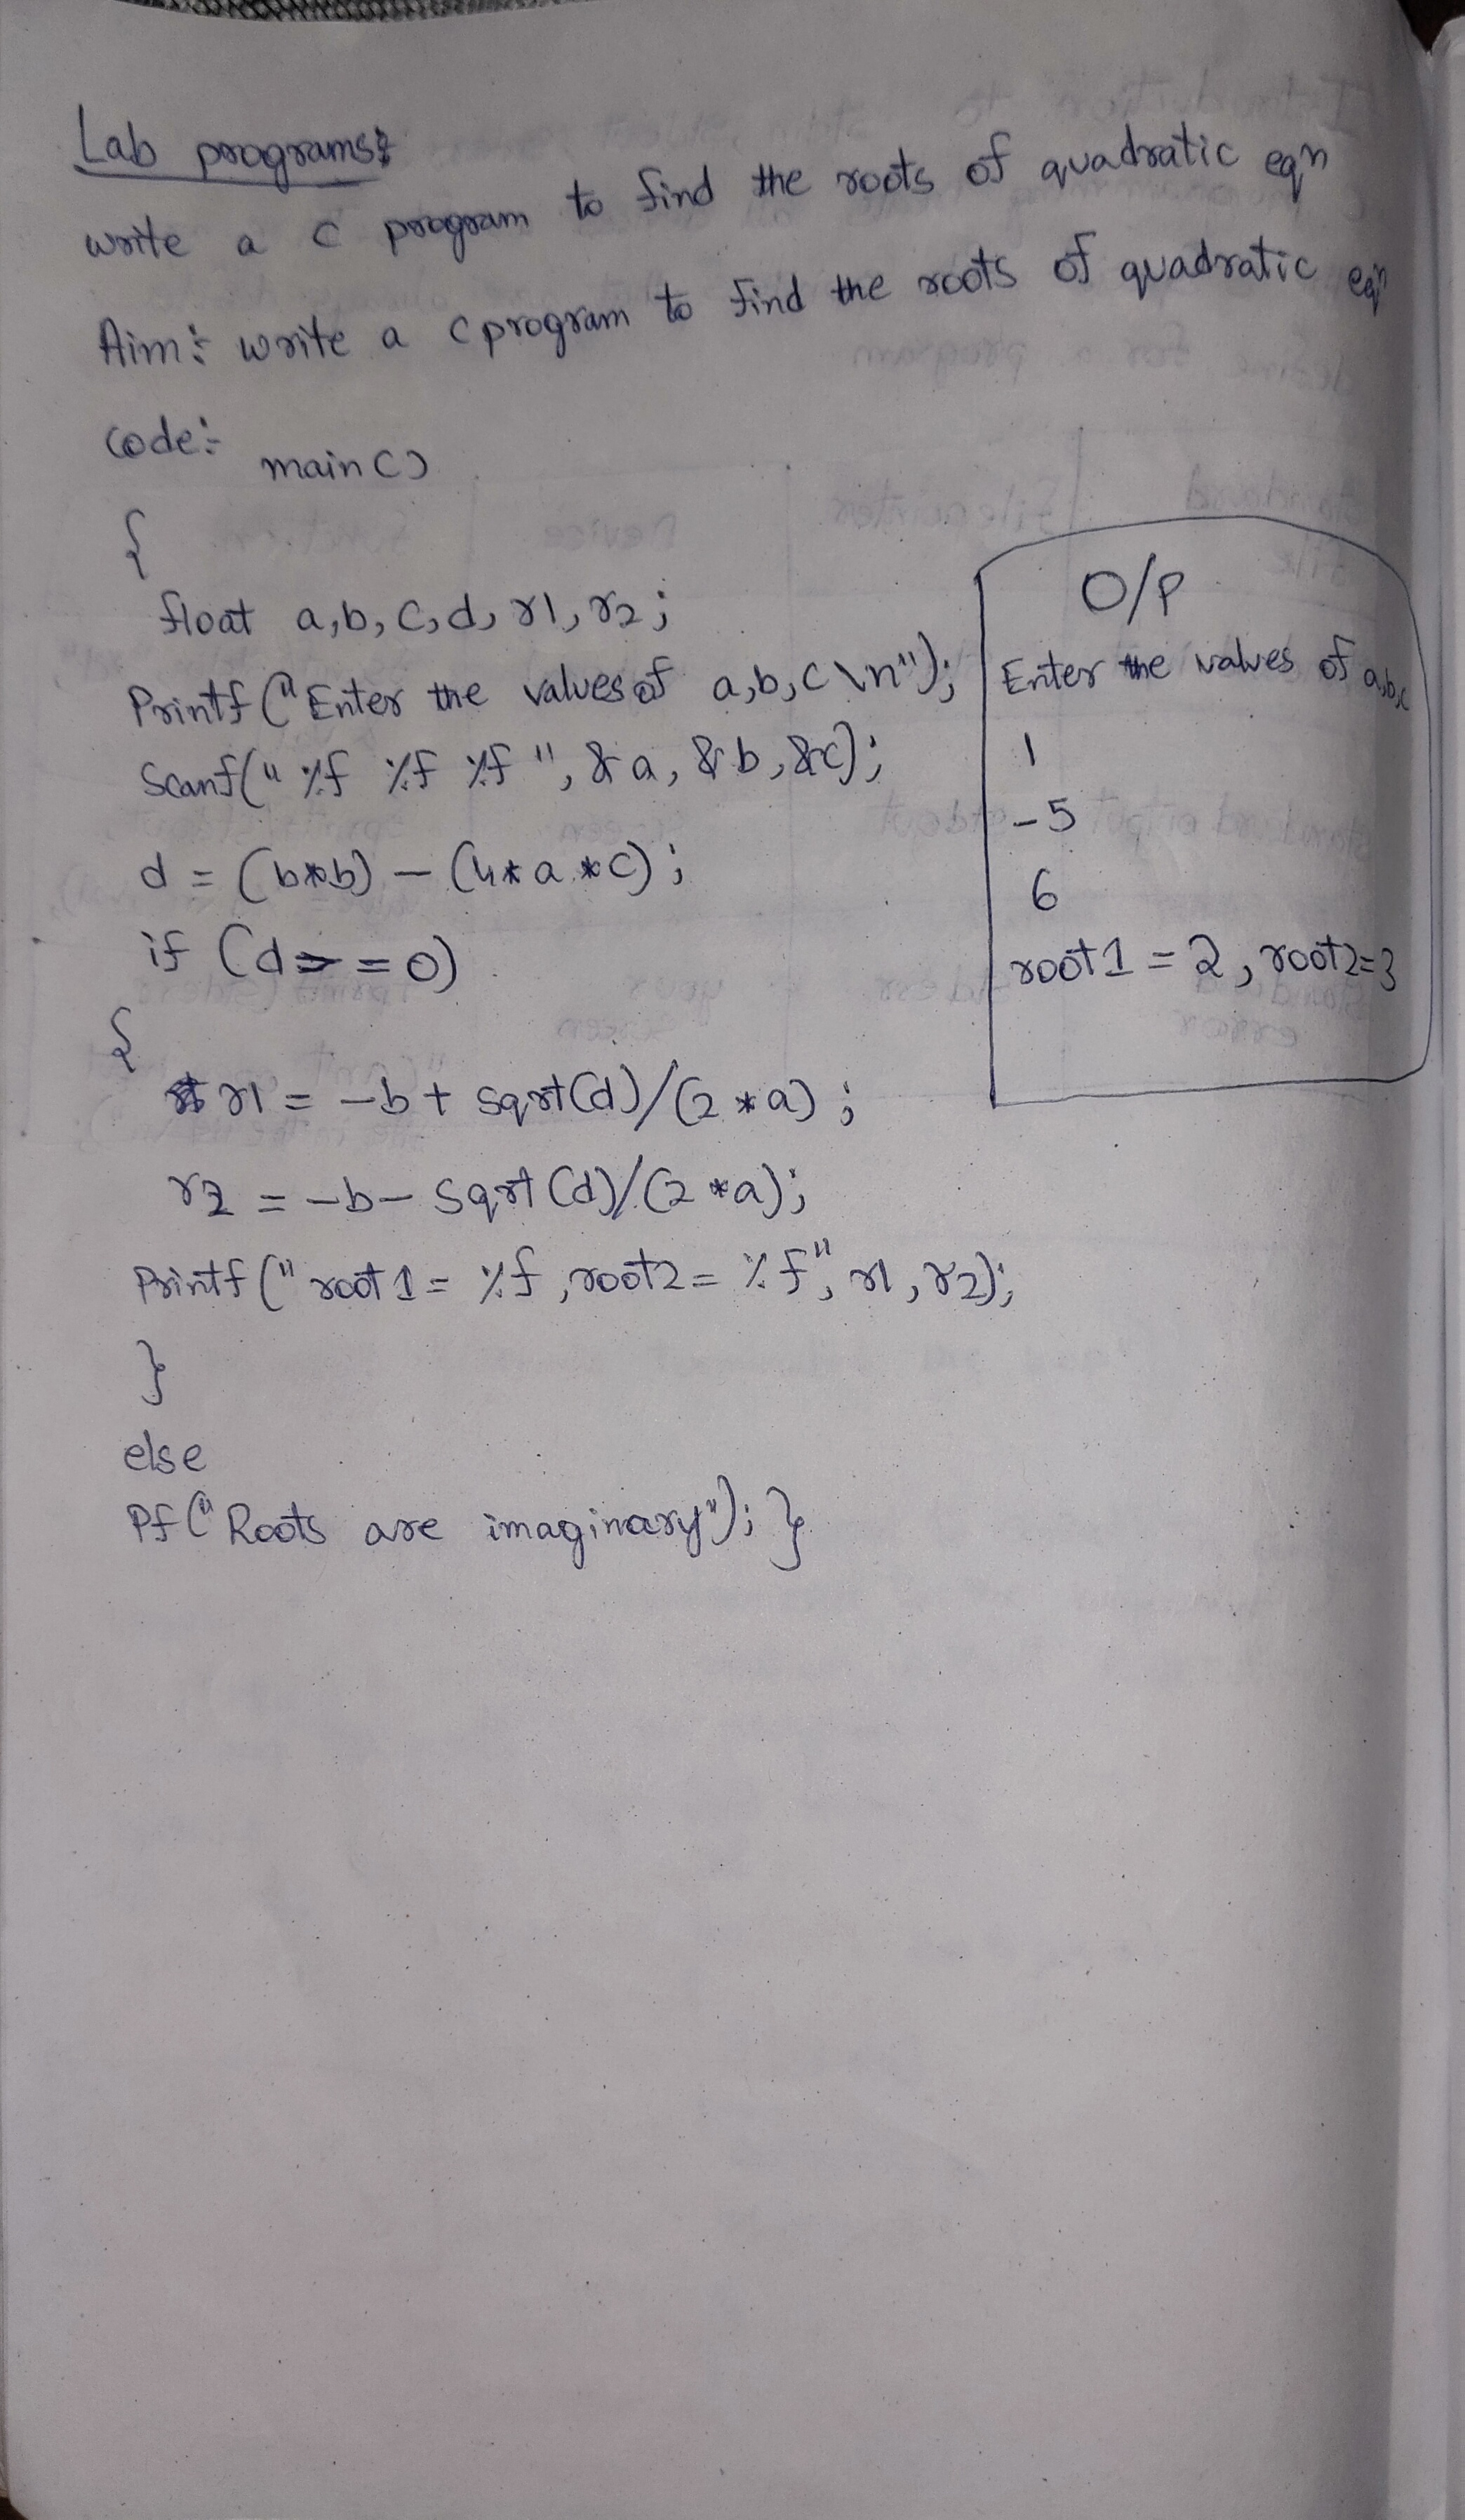 Lab programs:
write a c program to find the roots of quadratic eqn
Aim:- write a c program to find the roots of quadratic eqn
code:-
main()
{
float a,b,c,d,r1,r2;
Printf("Enter the values of a,b,c \n");
Scanf("%f %f %f", &a, &b, &c);
d = (b*b) - (4*a*c);
if (d>=0)
{
r1 = -b + sqrt(d)/(2*a);
r2 = -b - sqrt(d)/(2*a);
Printf("root1 = %f, root2 = %f", r1, r2);
}
else
Pf("Roots are imaginary"); }
O/P
Enter the values of a,b,c
1
-5
6
root1 = 2, root2=3